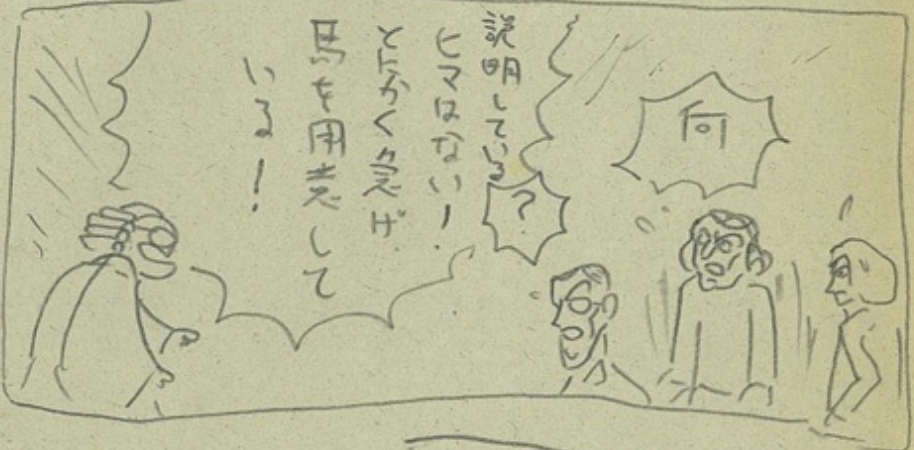 何
？
説明している
ヒマはない！
とにかく急げ
馬を用意して
いる！